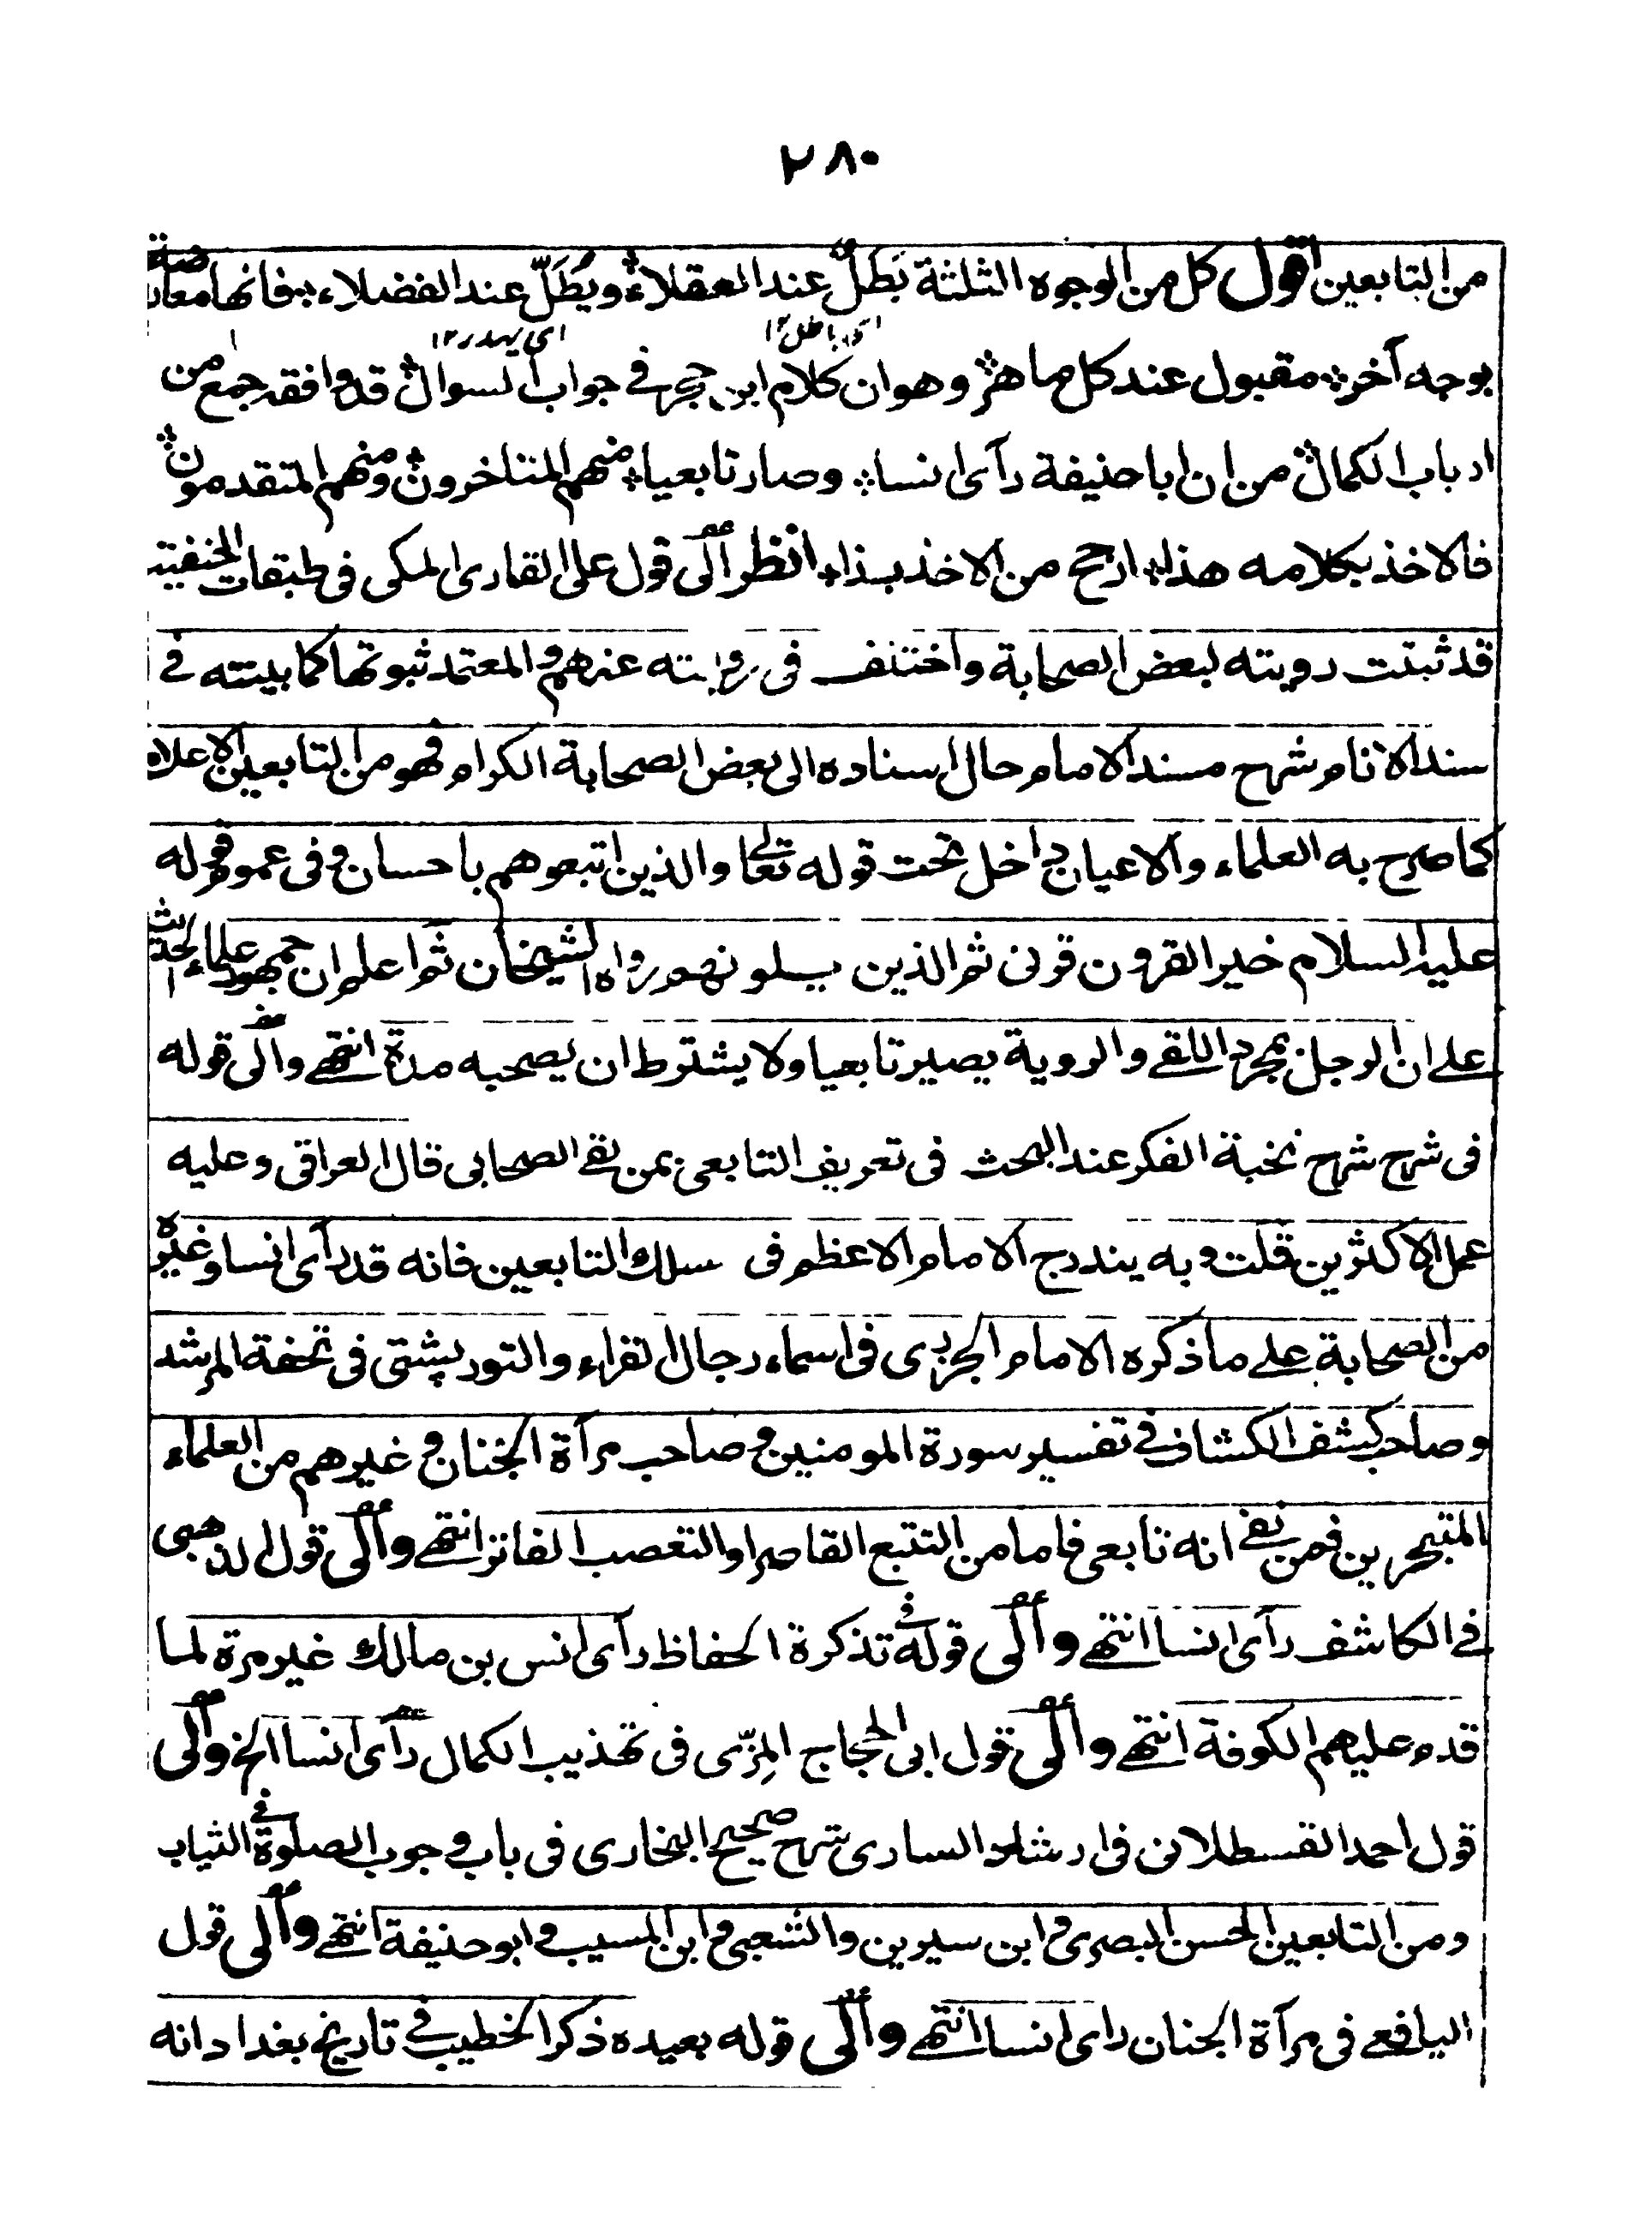 ٢٨٠
من التابعين اقول كل من الوجوه الثلثة بَطَلٌ عند العقلاء ويُطَلّ عند الفضلاء فانها معارضة
اى باطل ١٢ اى يهدر ١٢
بوجه آخر مقبول عند كل ماهر وهو ان كلام ابن حجر فى جواب السوال قد وافقه جمع من
ارباب الكمال من ان ابا حنيفة رآى انسا وصار تابعيا منهم المتاخرون ومنهم المتقدمون
فالاخذ بكلامه هذا ارجح من الاخذ بذاء انظر الى قول على القارى المكى فى طبقات الحنفية
قد ثبتت رويته لبعض الصحابة واختلف فى روايته عنهم والمعتمد ثبوتها كما بينته فى
سند الانام شرح مسند الامام حال اسناده الى بعض الصحابة الكرام فهو من التابعين الاعلام
كما صرح به العلماء والاعيان داخل تحت قوله تعالى والذين اتبعوهم باحسان وفى عموم قوله
عليه السلام خير القرون قرنى ثم الذين يلونهم رواه الشيخان ثم اعلم ان جمهور علماء الحديث
على ان الرجل بمجرد اللقى والروية يصير تابعيا ولا يشترط ان يصحبه مدة انتهى والى قوله
فى شرح شرح نخبة الفكر عند البحث فى تعريف التابعى بمن لقى الصحابى قال العراقى وعليه
عمل الاكثرين قلت وبه يندرج الامام الاعظم فى سلك التابعين فانه قد رآى انسا وغيره
من الصحابة على ما ذكره الامام الجزرى فى اسماء رجال القراء والتوربشتى فى تحفة المرشد
وصاحب كشف الكشاف فى تفسير سورة المومنين وصاحب مرآة الجنان وغيرهم من العلماء
المتبحرين فمن نفى انه تابعى فاما من التتبع القاصر او التعصب الفاتر انتهى والى قول الذهبى
فى الكاشف رآى انسا انتهى والى قوله فى تذكرة الحفاظ رآى انس بن مالك غير مرة لما
قدم عليهم الكوفة انتهى والى قول ابى الحجاج المِزّى فى تهذيب الكمال رآى انسا الخ والى
قول احمد القسطلانى فى ارشاد السارى شرح صحيح البخارى فى باب وجوب الصلوة فى الثياب
ومن التابعين الحسن البصرى وابن سيرين والشعبى وابن المسيب وابو حنيفة انتهى والى قول
اليافعى فى مرآة الجنان راى انسا انتهى والى قوله بعيده ذكر الخطيب فى تاريخ بغداد انه